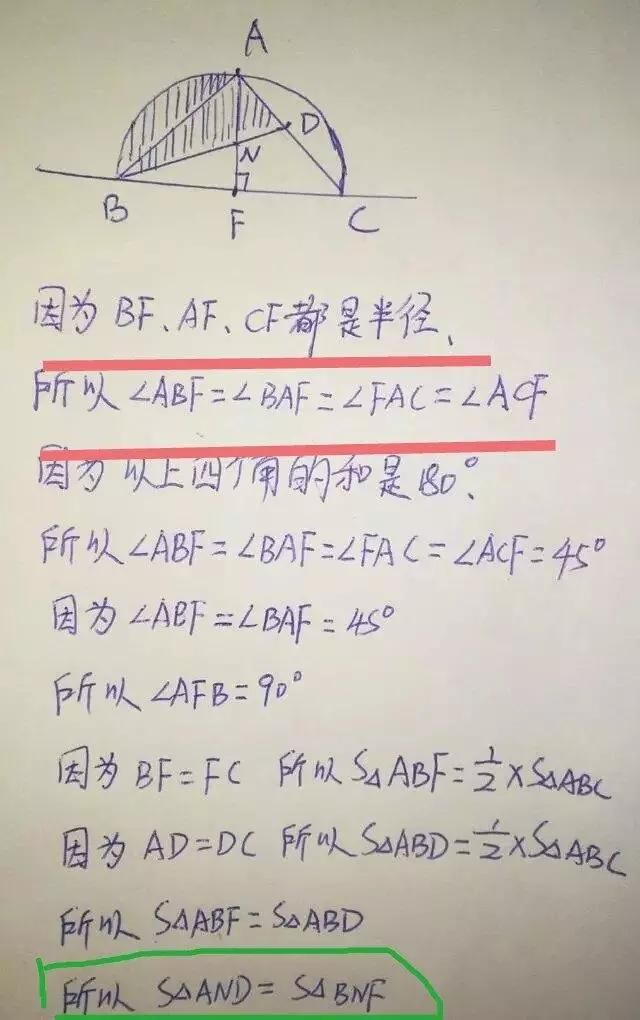 A
D
N
B
F
C
因为 BF、AF、CF都是半径、
所以 ∠ABF=∠BAF=∠FAC=∠ACF
因为以上四个角的和是180°、
所以 ∠ABF=∠BAF=∠FAC=∠ACF=45°
因为 ∠ABF=∠BAF=45°
所以 ∠AFB=90°
因为 BF=FC 所以 S△ABF=1/2×S△ABC
因为 AD=DC 所以 S△ABD=1/2×S△ABC
所以 S△ABF=S△ABD
所以 S△AND=S△BNF